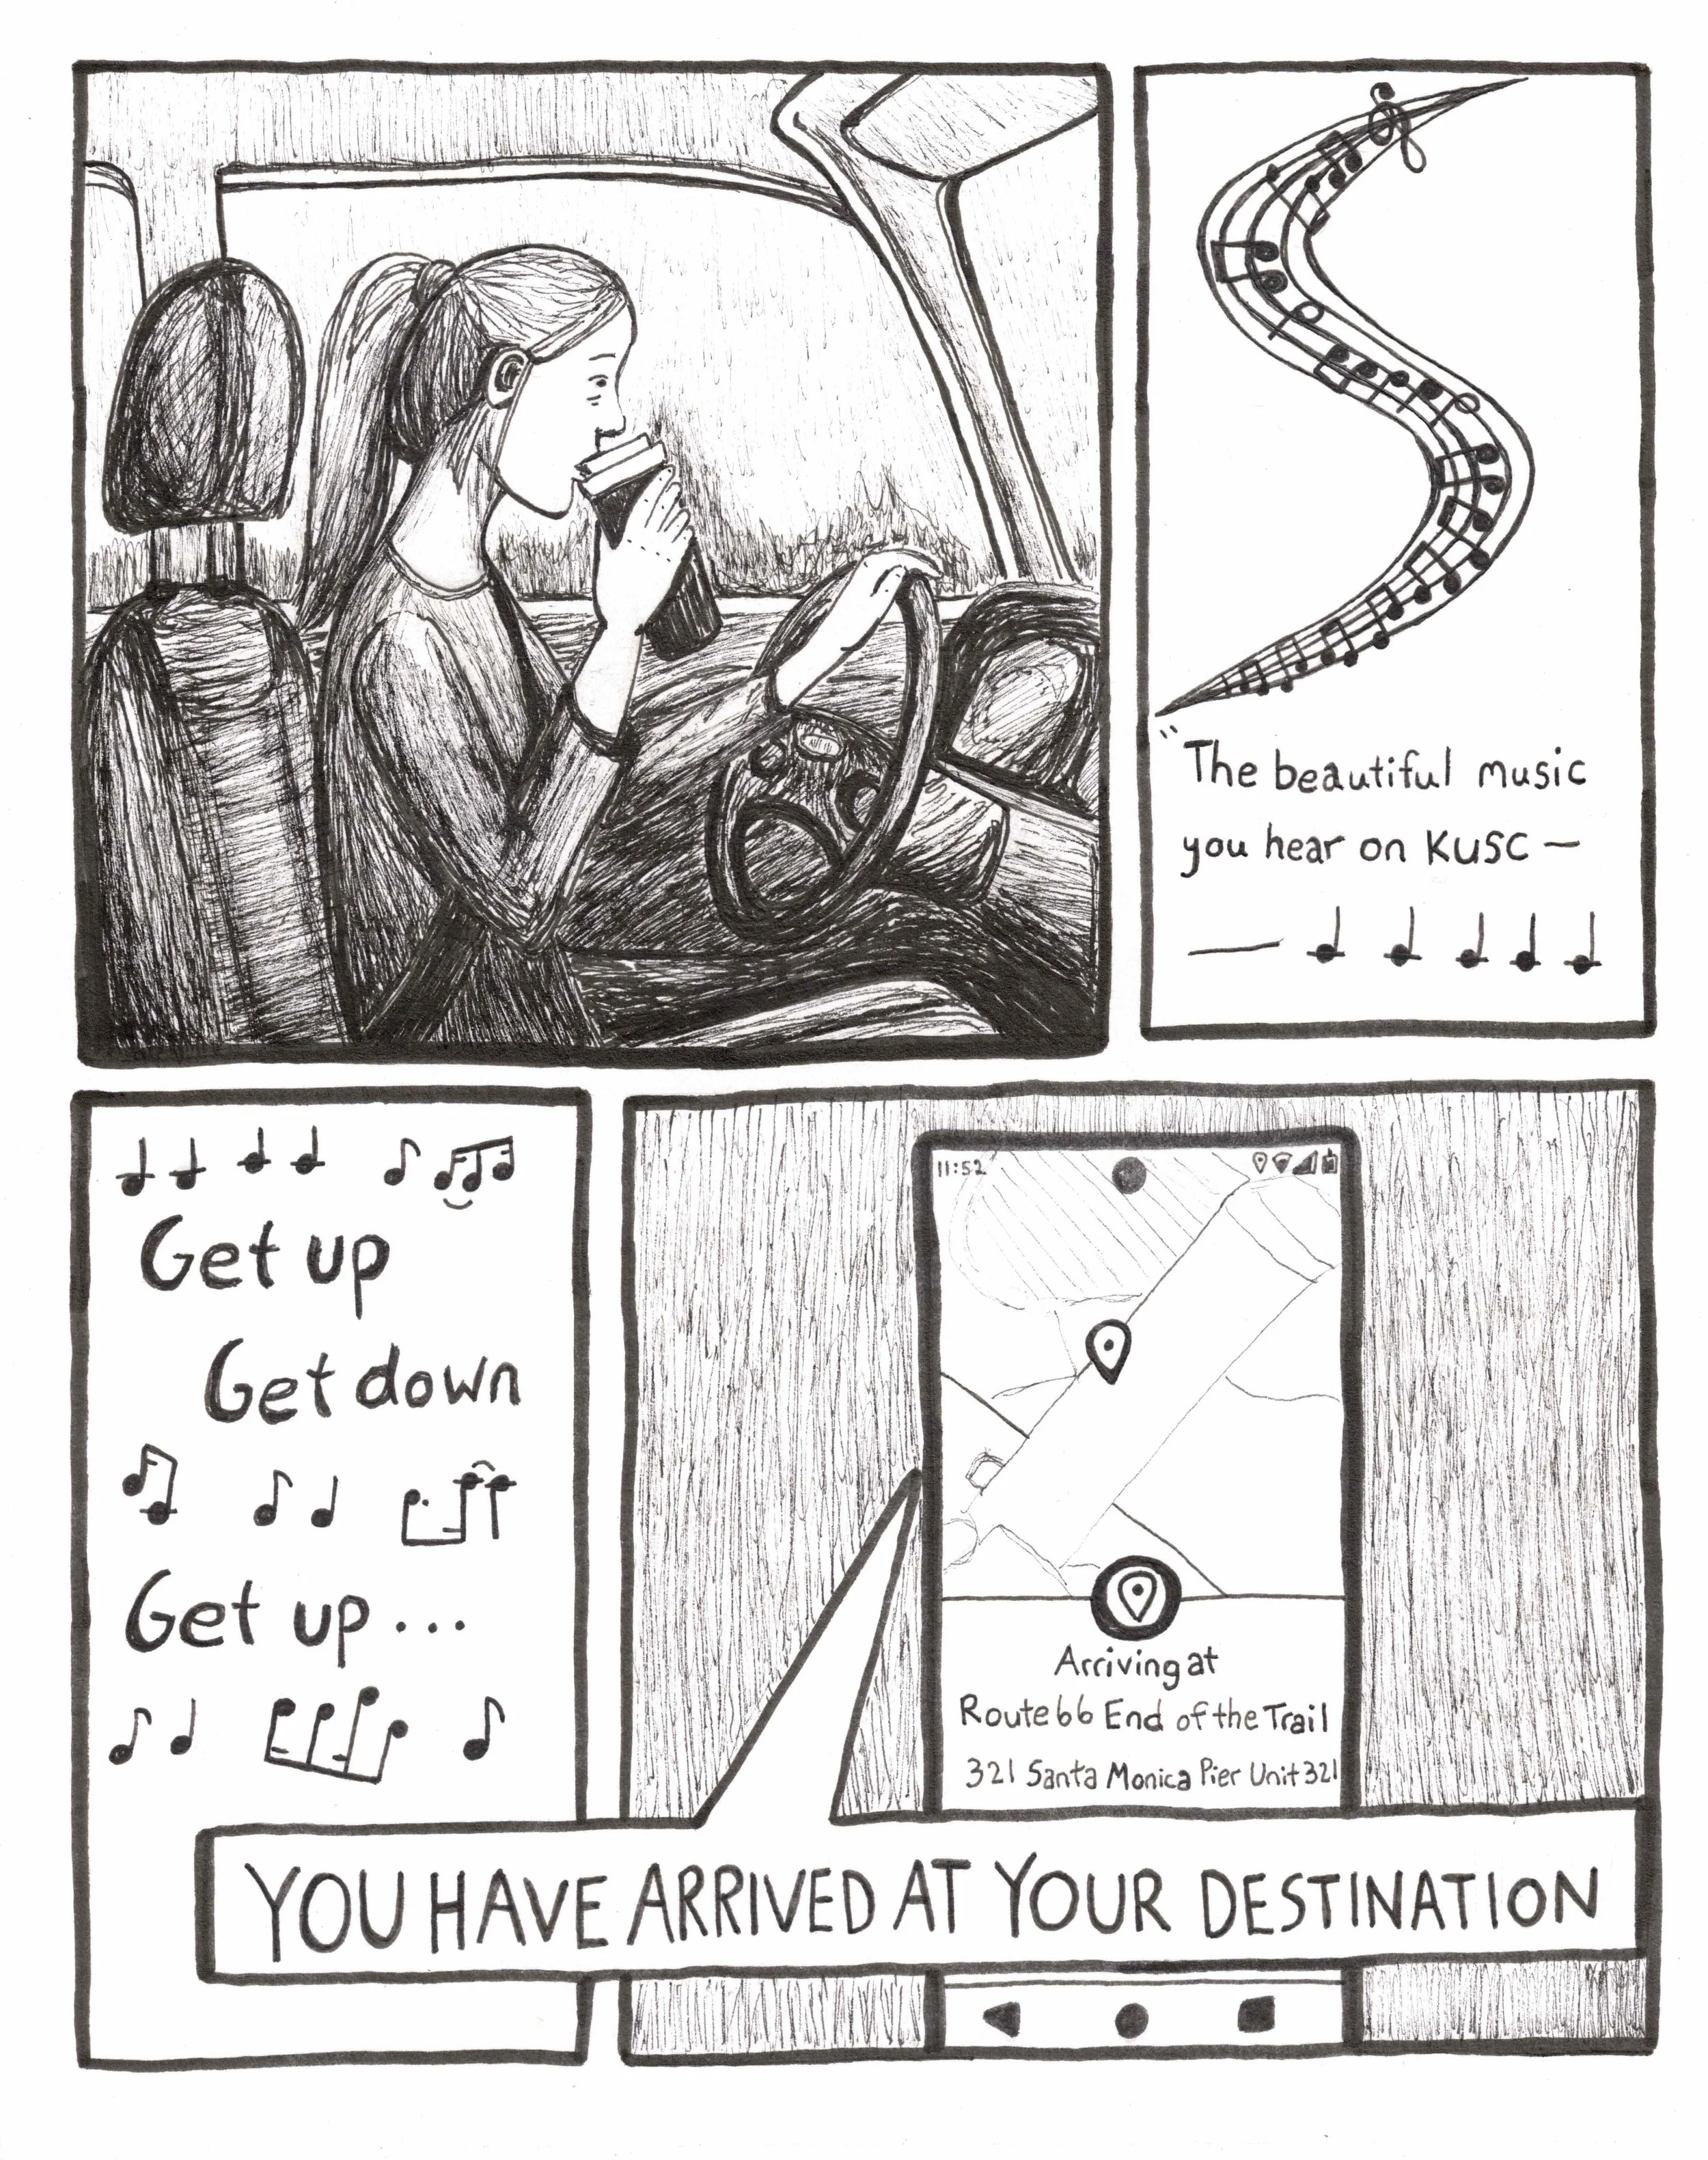 "The beautiful music
you hear on KUSC —
Get up
Get down
Get up...
11:52
Arriving at
Route 66 End of the Trail
321 Santa Monica Pier Unit 321
YOU HAVE ARRIVED AT YOUR DESTINATION